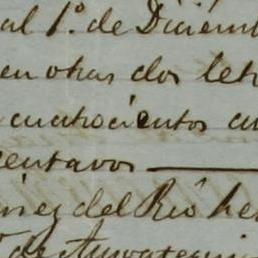 al 1º. de Diciem
en otras dos let
cuatrocientos cu
entavos
nez del Rio he
de